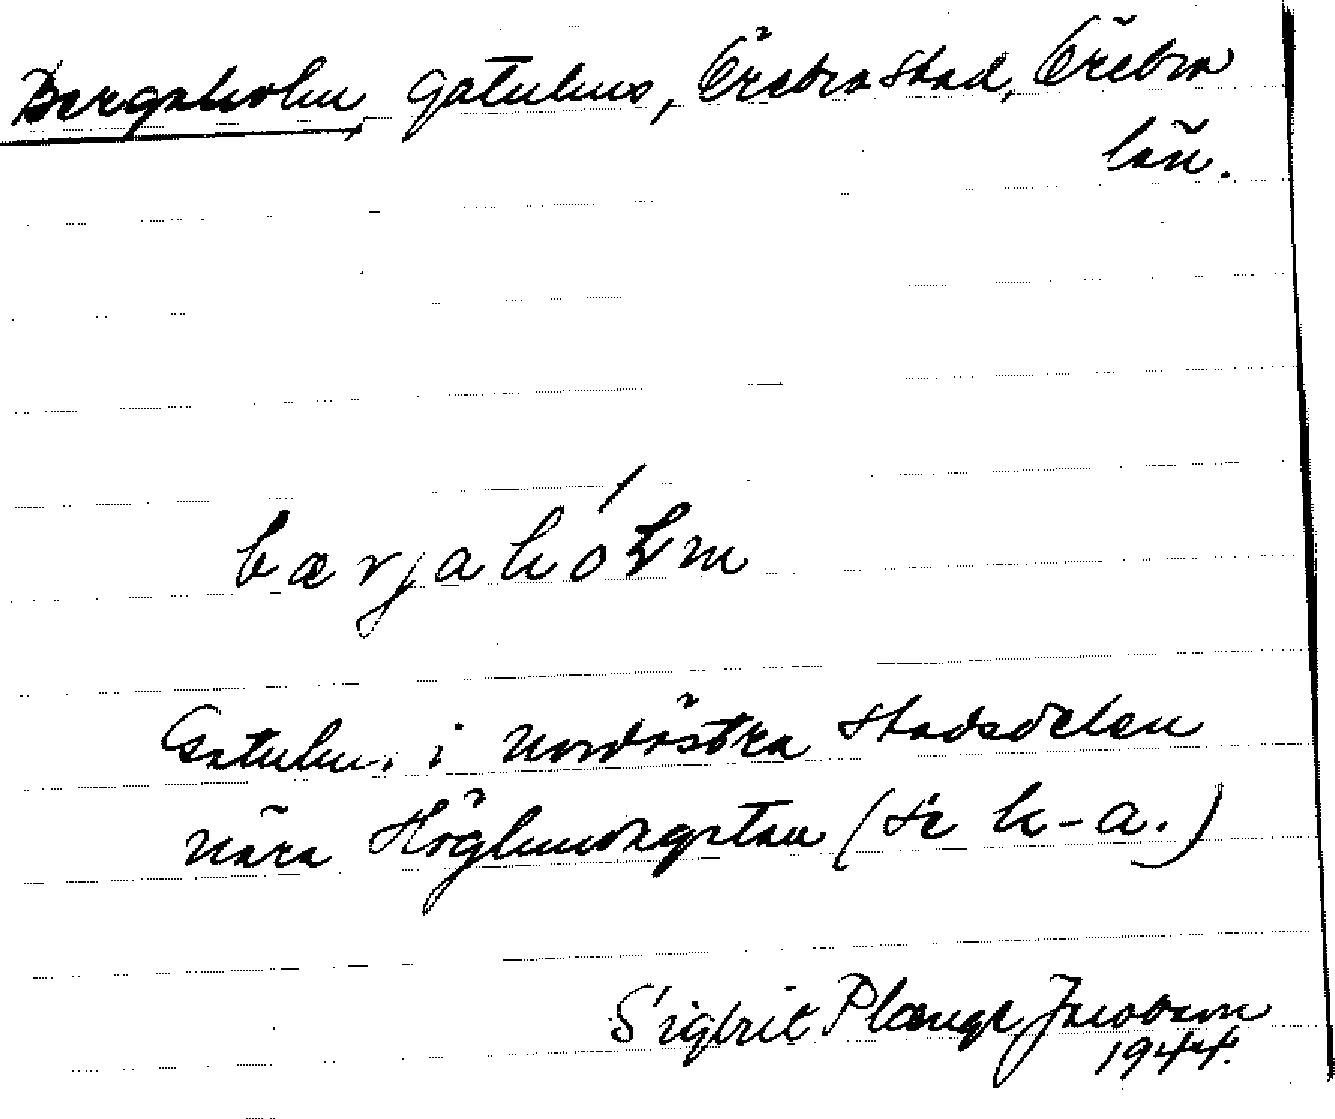 Bergaholm, gatuhus, Örebro stad, Örebro
län.
bærjahólm
Gatuhu. i nordöstra stadsdelen
nära Höglundagatan (se k-a.)
Sigbrit Plænge Jacobson
1944.